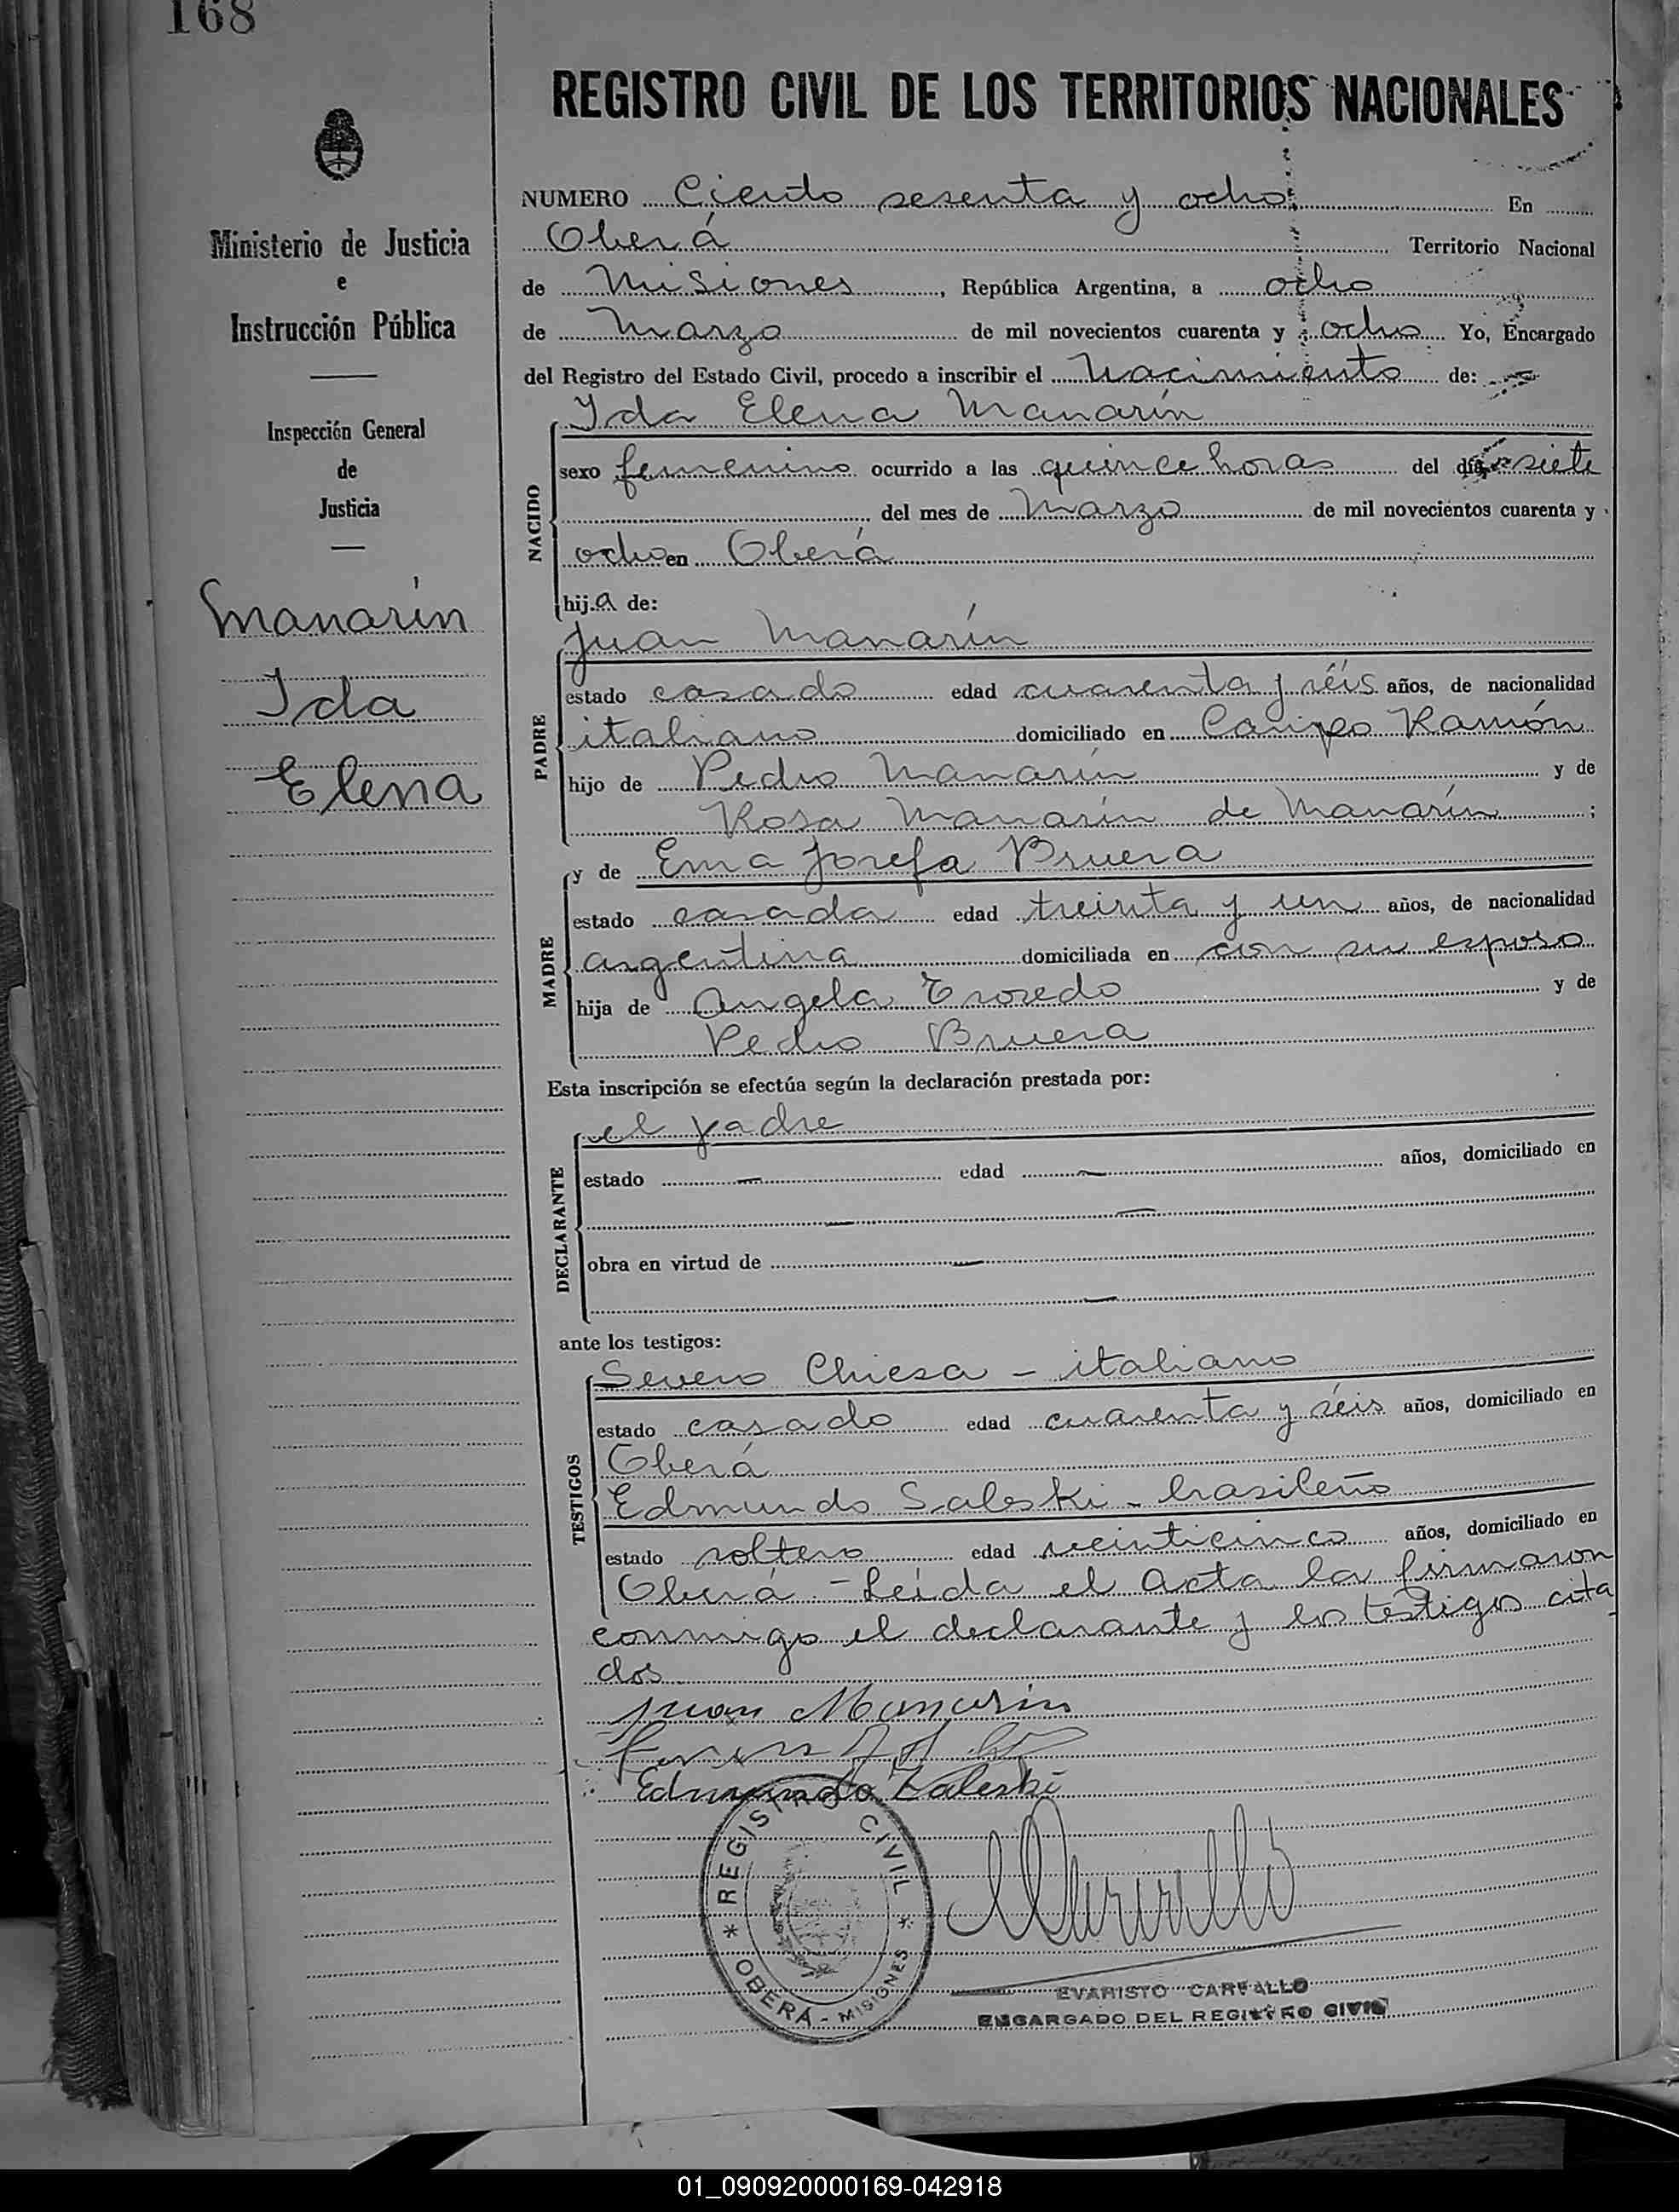 168
REGISTRO CIVIL DE LOS TERRITORIOS NACIONALES
Ministerio de Justicia
e
Instrucción Pública
Inspección General
de
Justicia
Manarín
Ida
Elena
NUMERO Ciento sesenta y ocho En
Oberá Territorio Nacional
de Misiones, República Argentina, a ocho
de Marzo de mil novecientos cuarenta y ocho Yo, Encargado
del Registro del Estado Civil, procedo a inscribir el Nacimiento de:
Ida Elena Manarín
NACIDO
sexo femenino ocurrido a las quince horas del día siete
del mes de Marzo de mil novecientos cuarenta y
ocho en Oberá
hija de:
Juan Manarín
PADRE
estado casado edad cuarenta y séis años, de nacionalidad
italiano domiciliado en Campo Ramón
hijo de Pedro Manarín y de
Rosa Manarín de Manarín;
y de Ema Josefa Bruera
MADRE
estado casada edad treinta y un años, de nacionalidad
argentina domiciliada en con su esposo
hija de Angela y de
Pedro Bruera
Esta inscripción se efectúa según la declaración prestada por:
el padre
DECLARANTE
estado — edad — años, domiciliado en
— —
obra en virtud de —
—
ante los testigos:
Severo Chiesa - italiano
TESTIGOS
estado casado edad cuarenta y séis años, domiciliado en
Oberá
Edmundo Saleski - brasileño
estado soltero edad veinticinco años, domiciliado en
Oberá - Leída el Acta la firmaron
conmigo el declarante y los testigos cita
dos
Juan Manarin
Edmundo Zaleski
* REGISTRO CIVIL *
OBERÁ - MISIONES
EVARISTO CARVALLO
ENCARGADO DEL REGISTRO CIVIL
01_090920000169-042918